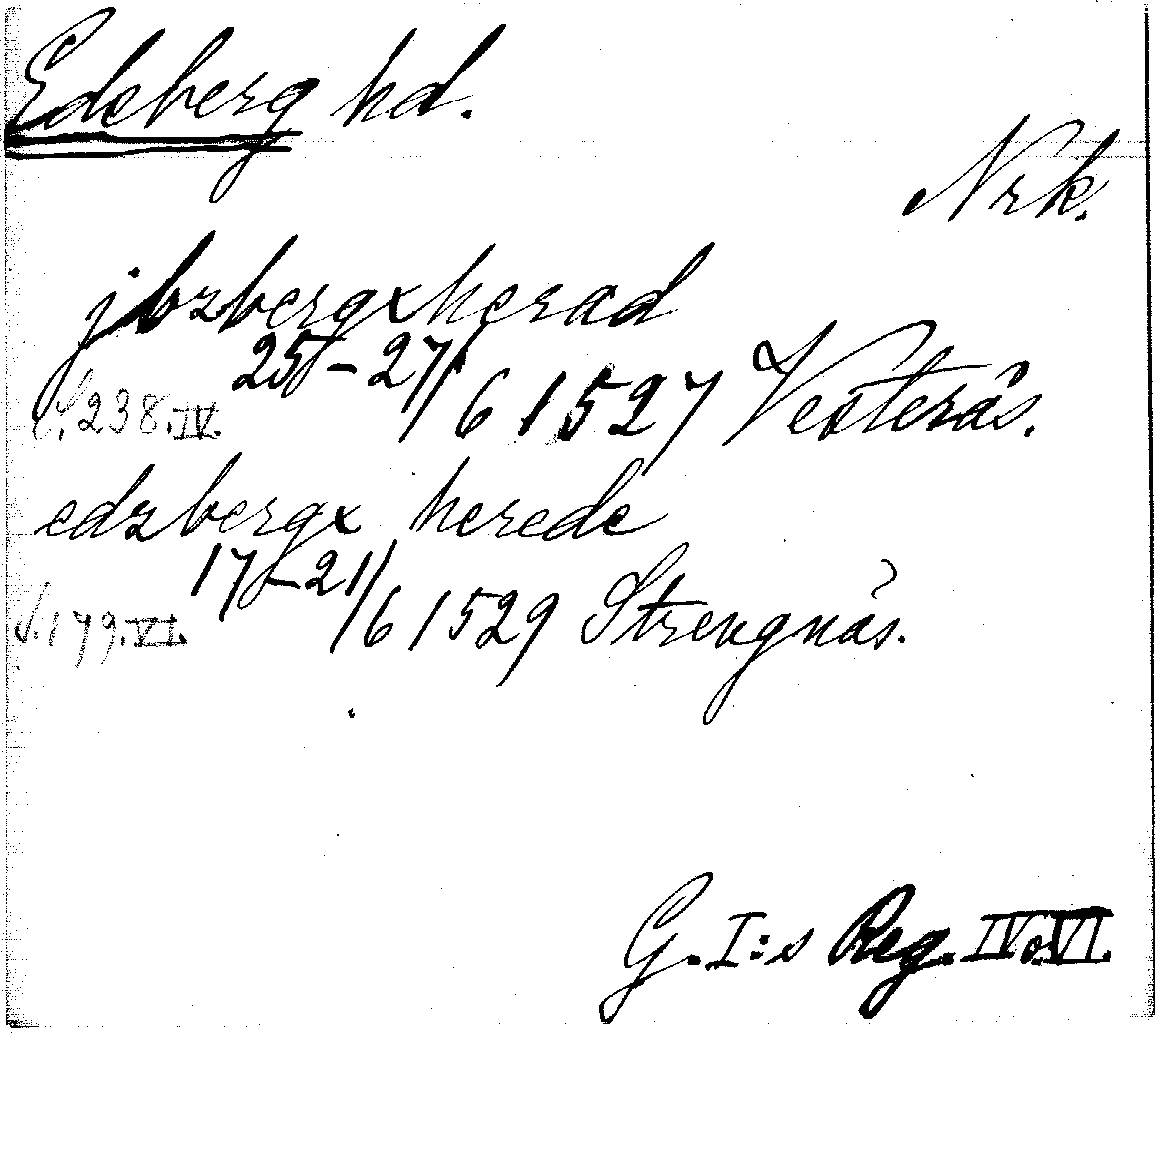 Edsberg hd.
Nrk.
jbzbergx herad
25–27/6 1527 Vesterås.
S. 238. IV.
edzbergx herede
17–21/6 1529 Strengnäs.
S. 179. VI.
G. I:s Reg. IV o. VI.